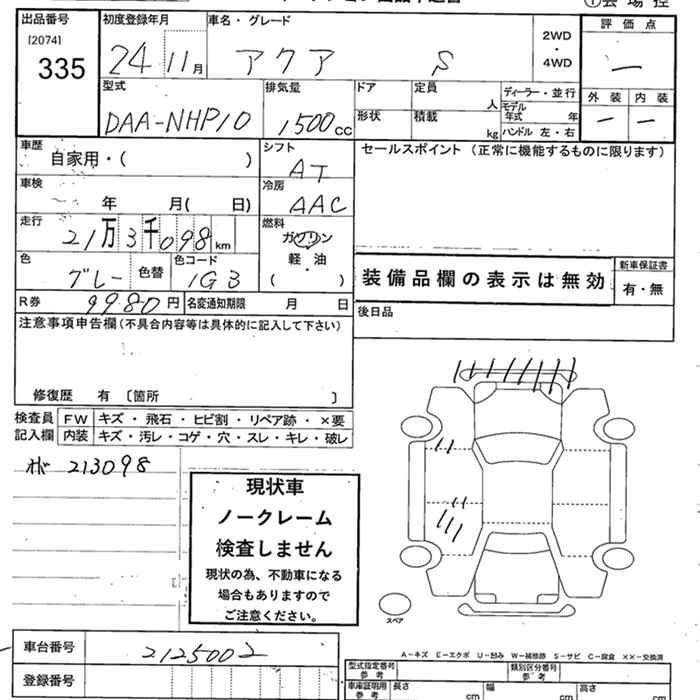 出品番号 初度登録年月 車名・グレード 評価点
[2074]
335 24 11月 アクア S 2WD・4WD
外装 内装
型式 排気量 ドア 定員 人 ディーラー・並行
DAA-NHP10 1500cc 形状 積載 kg モデル年式 年 ハンドル 左・右
車歴 自家用・( ) シフト AT セールスポイント(正常に機能するものに限ります)
車検 年 月( 日) 冷房 AAC
走行 21万3千098km 燃料 ガソリン
軽・油
( )
色 グレー 色替 色コード 1G3 装備品欄の表示は無効 新車保証書 有・無
R券 9980円 名変通知期限 月 日 後日品
注意事項申告欄(不具合内容等は具体的に記入して下さい)
修復歴 有 〔箇所 〕
検査員 FW キズ・飛石・ヒビ割・リペア跡・×要
記入欄 内装 キズ・汚レ・コゲ・穴・スレ・キレ・破レ
213098
現状車
ノークレーム
検査しません
現状の為、不動車になる
場合もありますので
ご注意ください。
スペア
車台番号 2125002
登録番号
A-キズ E-エクボ U-凹み W-補修跡 S-サビ C-腐食 ××-交換済
型式指定番号 参考 類別区分番号 参考
車庫証明用 参考 長さ cm 幅 cm 高さ cm